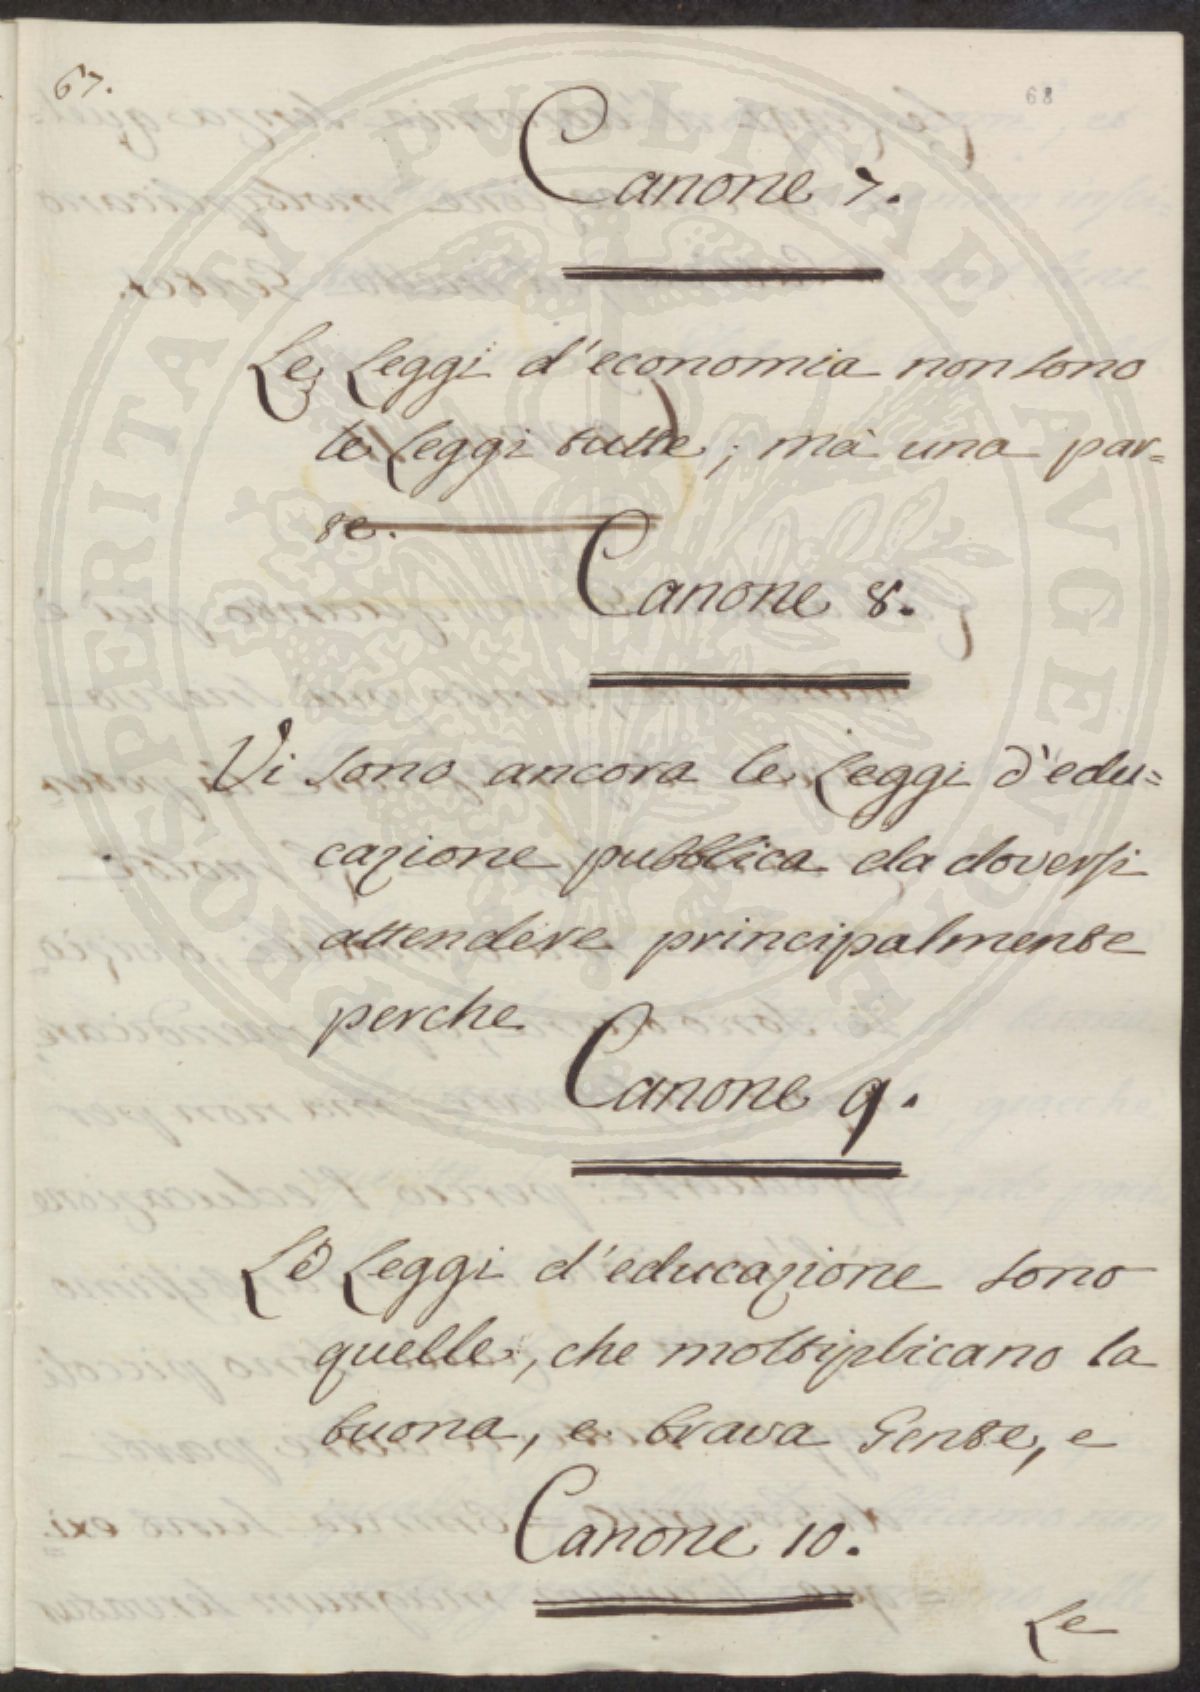 67.
68
Canone 7.
Le Leggi d'economia non sono
le Leggi tutte; mà una par=
te.
Canone 8.
Vi sono ancora le Leggi d'edu=
cazione pubblica da doversi
attendere principalmente
perche
Canone 9.
Le Leggi d'educazione sono
quelle, che moltiplicano la
buona, e brava Gente, e
Canone 10.
Le
PROSPERITATI PVBLICAE AVGENDAE